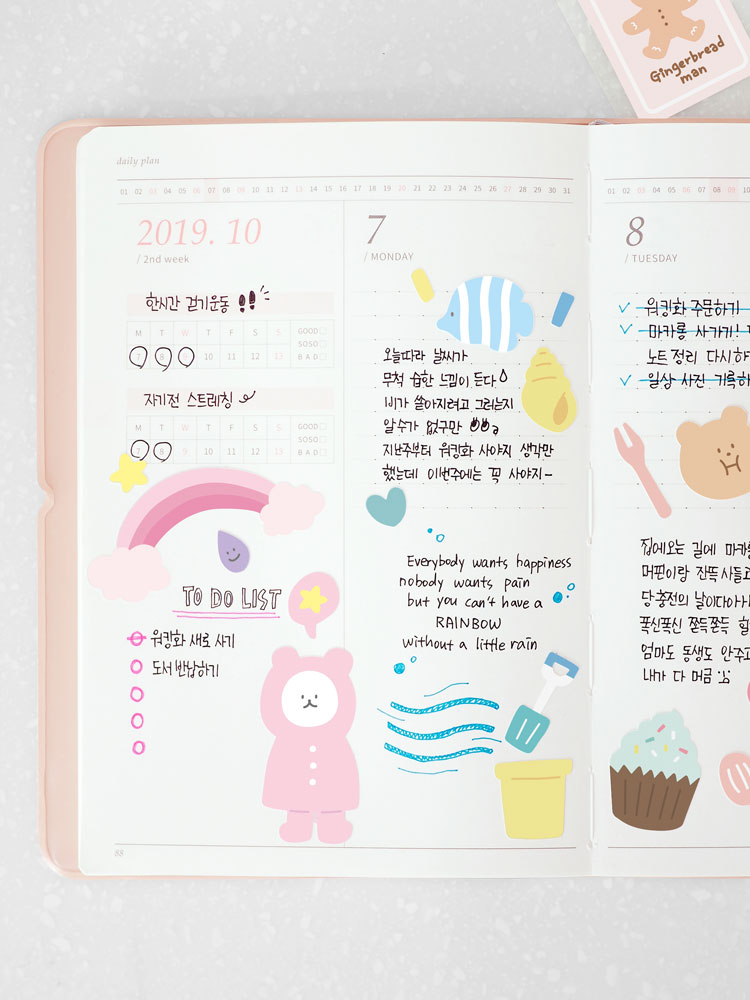 Gingerbread
man
daily plan
01 02 03 04 05 06 07 08 09 10 11 12 13 14 15 16 17 18 19 20 21 22 23 24 25 26 27 28 29 30 31
2019. 10
/ 2nd week
한시간 걷기운동 !!
M T W T F S S GOOD
SOSO
7 8 9 10 11 12 13 BAD
자기전 스트레칭
M T W T F S S GOOD
SOSO
7 8 9 10 11 12 13 BAD
TO DO LIST
워킹화 새로 사기
도서 반납하기
88
7
/ MONDAY
오늘따라 날씨가
무척 습한 느낌이 든다
비가 쏟아지려고 그러는지
알수가 없구만
지난주부터 워킹화 사야지 생각만
했는데 이번주에는 꼭 사야지~
Everybody wants happiness
nobody wants pain
but you can't have a
RAINBOW
without a little rain
01 02 03 04 05 06 07 08 09 10
8
/ TUESDAY
워킹화 주문하기
마카롱 사가기!
노트정리 다시하
일상 사진 기록하
집에오는 길에 마카
머핀이랑 잔뜩사들고
당충전의 날이다아
폭신폭신 쫀득쫀득
엄마도 동생도 안주고
내가 다 머금